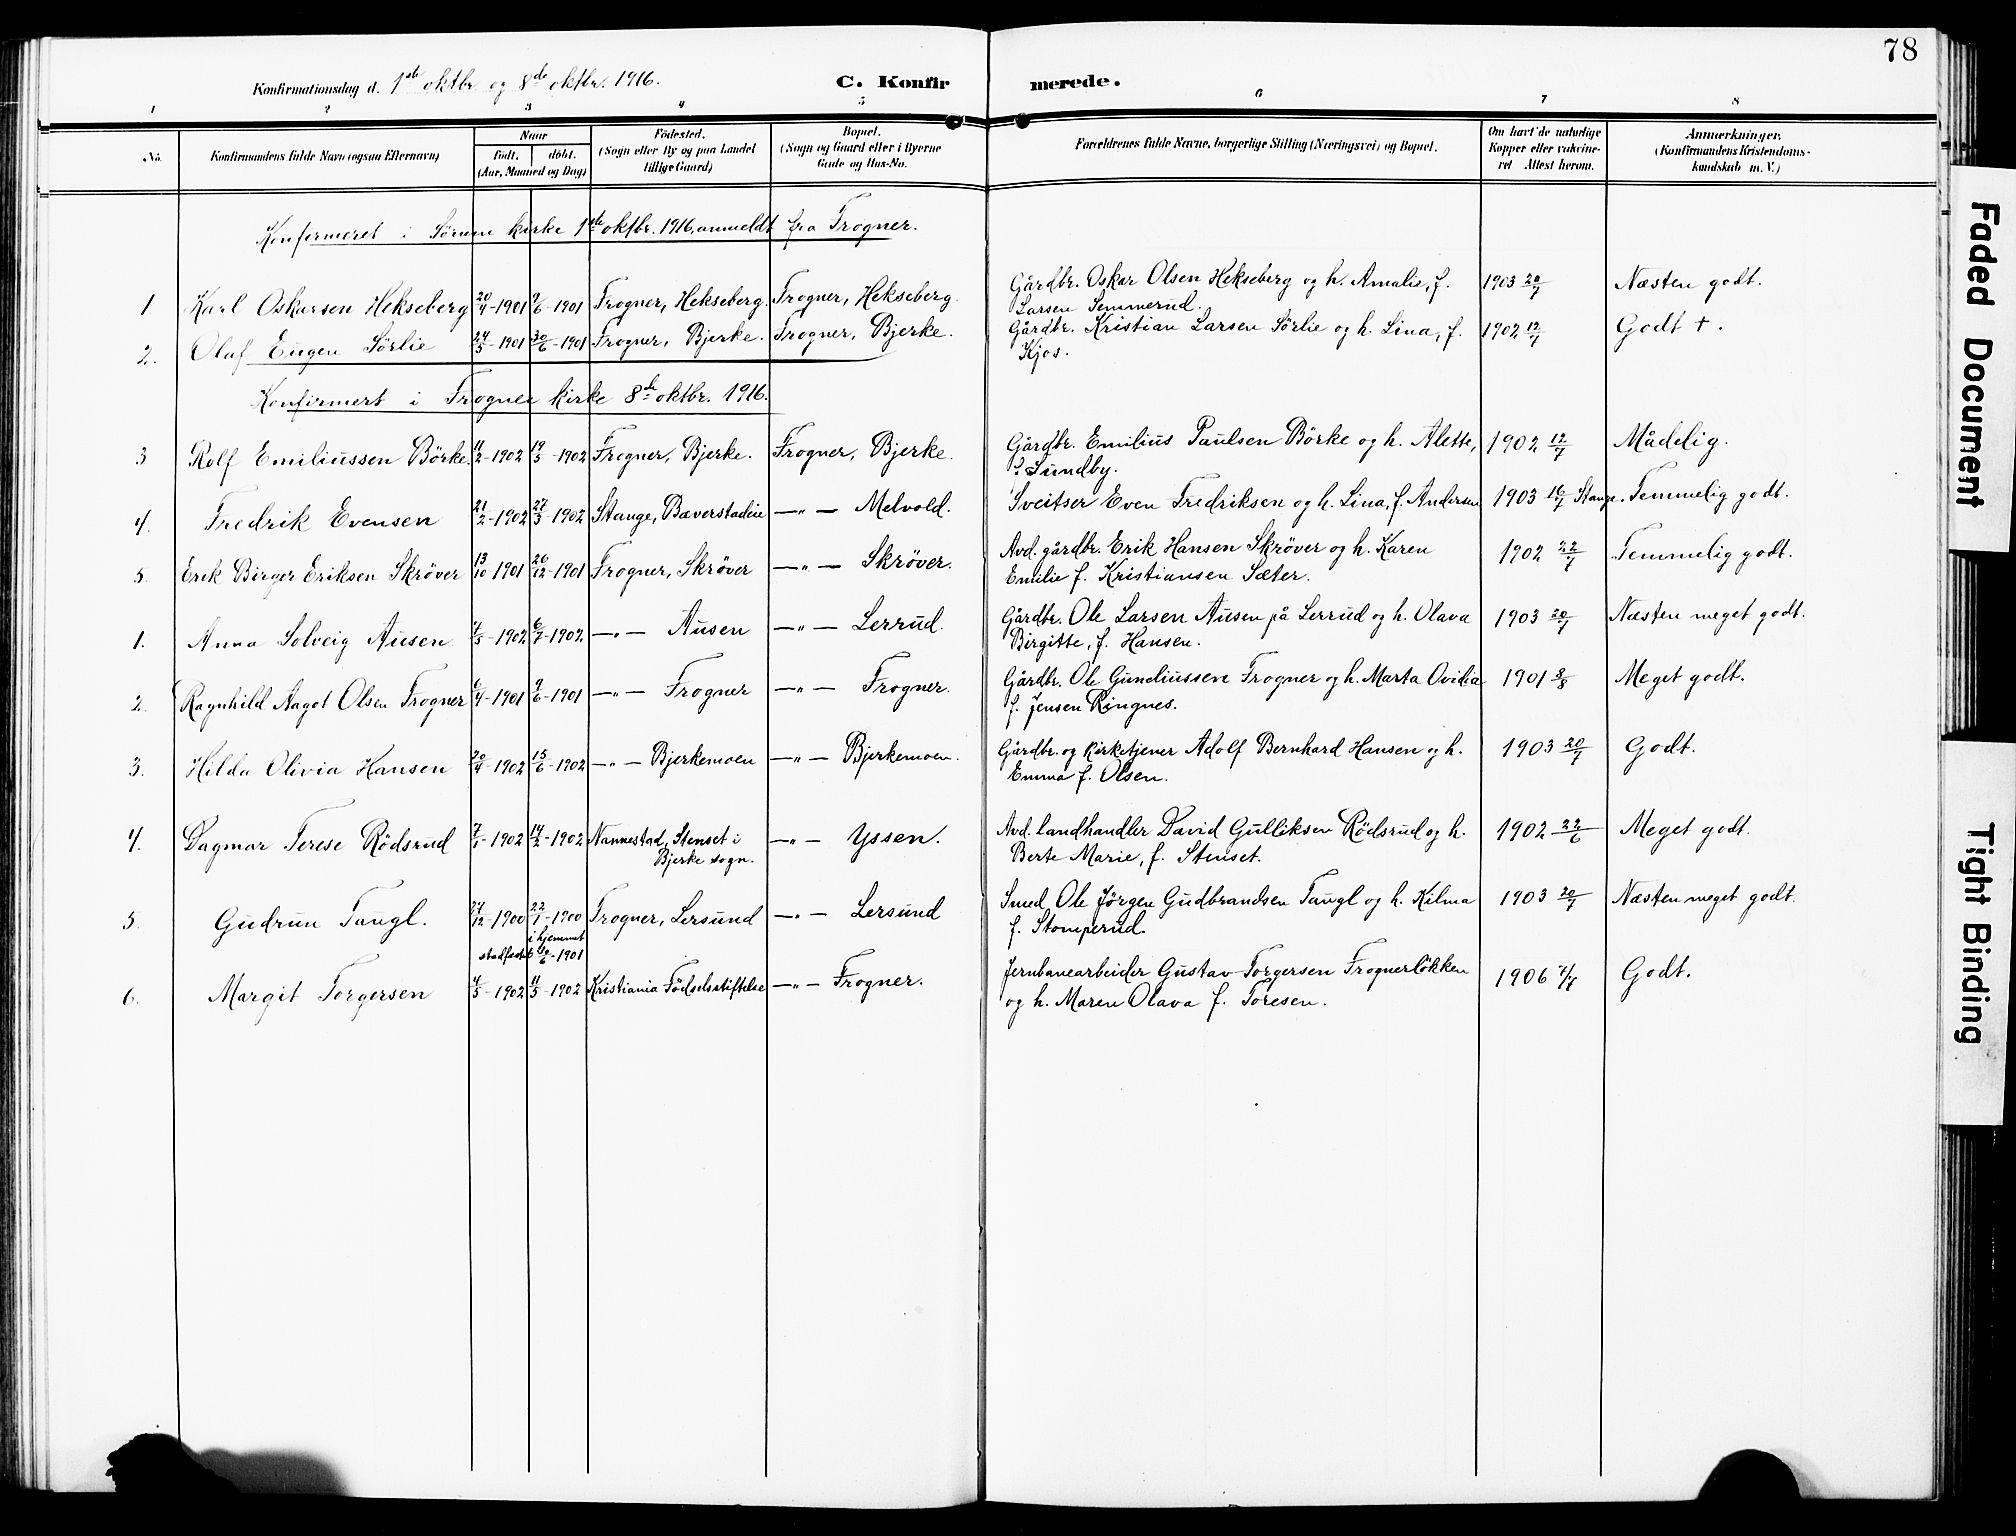 78
Konfirmationsdag d. 1ste oktbr. og 8de oktbr. 1916.
C. Konfirmerede.
1 2 3 4 5 6 7 8
No.
Konfirmandens fulde Navn (ogsaa Efternavn)
Naar
født. døbt.
(Aar, Maaned og Dag)
Fødested.
(Sogn eller By og paa Landet
tillige Gaard)
Bopæl.
(Sogn og Gaard eller i Byerne
Gade og Hus-No.
Forældrenes fulde Navne, borgerlige Stilling (Næringsvei) og Bopæl.
Om havt de naturlige
Kopper eller vakcineret
Attest herom.
Anmærkninger.
(Konfirmandens Kristendomskundskab
m. V.)
Konfirmeret i Sørum kirke 1ste oktbr. 1916, anmeldt fra Frogner.
1 Karl Oskarsen Hekseberg 20/4-1901 9/6-1901 Frogner, Hekseberg. Frogner, Hekseberg. Gårdbr. Oskar Olsen Hekseberg og h. Amalie, f. 1903 20/7 Næsten godt.
Larsen Semmerud.
2. Olaf Eugen Sörlie 24/5-1901 30/6-1901 Frogner, Bjerke. Frogner, Bjerke. Gårdbr. Kristian Larsen Sörlie og h. Lina, f. 1902 12/7 Godt +.
Kjos.
Konfirmert i Frogner kirke 8de oktbr. 1916.
3 Rolf Emiliussen Börke. 11/2-1902 19/5-1902 Frogner, Bjerke. Frogner, Bjerke. Gårdbr. Emilius Paulsen Börke og h. Alette, 1902 12/7 Mådelig.
f. Sundby.
4. Fredrik Evensen 21/2-1902 27/3-1902 Stange, Bæverstadeie —"— Melvold. Sveitser Even Fredriksen og h. Lina, f. Andersen 1903 16/7 Stange. Temmelig godt.
5. Erik Birger Eriksen Skröver 13/10 1901 26/12-1901 Frogner, Skröver —"— Skröver. Avd. gårdbr. Erik Hansen Skröver og h. Karen 1902 22/7 Temmelig godt.
Emilie f. Kristiansen Sæter.
1. Anna Solveig Ausen 7/5-1902 6/7-1902 —"— Ausen —"— Lerrud. Gårdbr. Ole Larsen Ausen på Lerrud og h. Olava 1903 20/7 Næsten meget godt.
Birgitte, f. Hansen.
2. Ragnhild Aagot Olsen Frogner 6/4-1901 9/6-1901 —"— Frogner —"— Frogner. Gårdbr. Ole Gundiussen Frogner og h. Marta Ovidia 1901 3/8 Meget godt.
f. Jensen Ringnes.
3. Hilda Olivia Hansen 20/4-1902 15/6-1902 —"— Bjerkemoen —"— Bjerkemoen. Gårdbr. og Kirketjener Adolf Bernhard Hansen og h. 1903 20/7 Godt.
Emma f. Olsen.
4. Dagmar Terese Rödsrud 7/1-1902 14/2-1902 Nannestad, Stenset i —"— Yssen. Avd. landhandler David Gulliksen Rödsrud og h. 1902 22/6 Meget godt.
Bjerke sogn. Berte Marie, f. Stenset.
5. Gudrun Tangl. 27/12-1900 22/1-1900 Frogner, Lersund —"— Lersund Smed Ole Jörgen Gudbrandsen Tangl og h. Kilma 1903 20/7 Næsten meget godt.
i hjemmet f. Stomperud.
stadfæstet 30/6-1901
6. Margit Torgersen 4/5-1902 11/5-1902 Kristiania Födselsstiftelse —"— Frogner. Jernbanearbeider Gustav Torgersen Frognerlökken 1906 7/7 Godt.
og h. Maren Olava f. Toresen.
Faded Document
Tight Binding